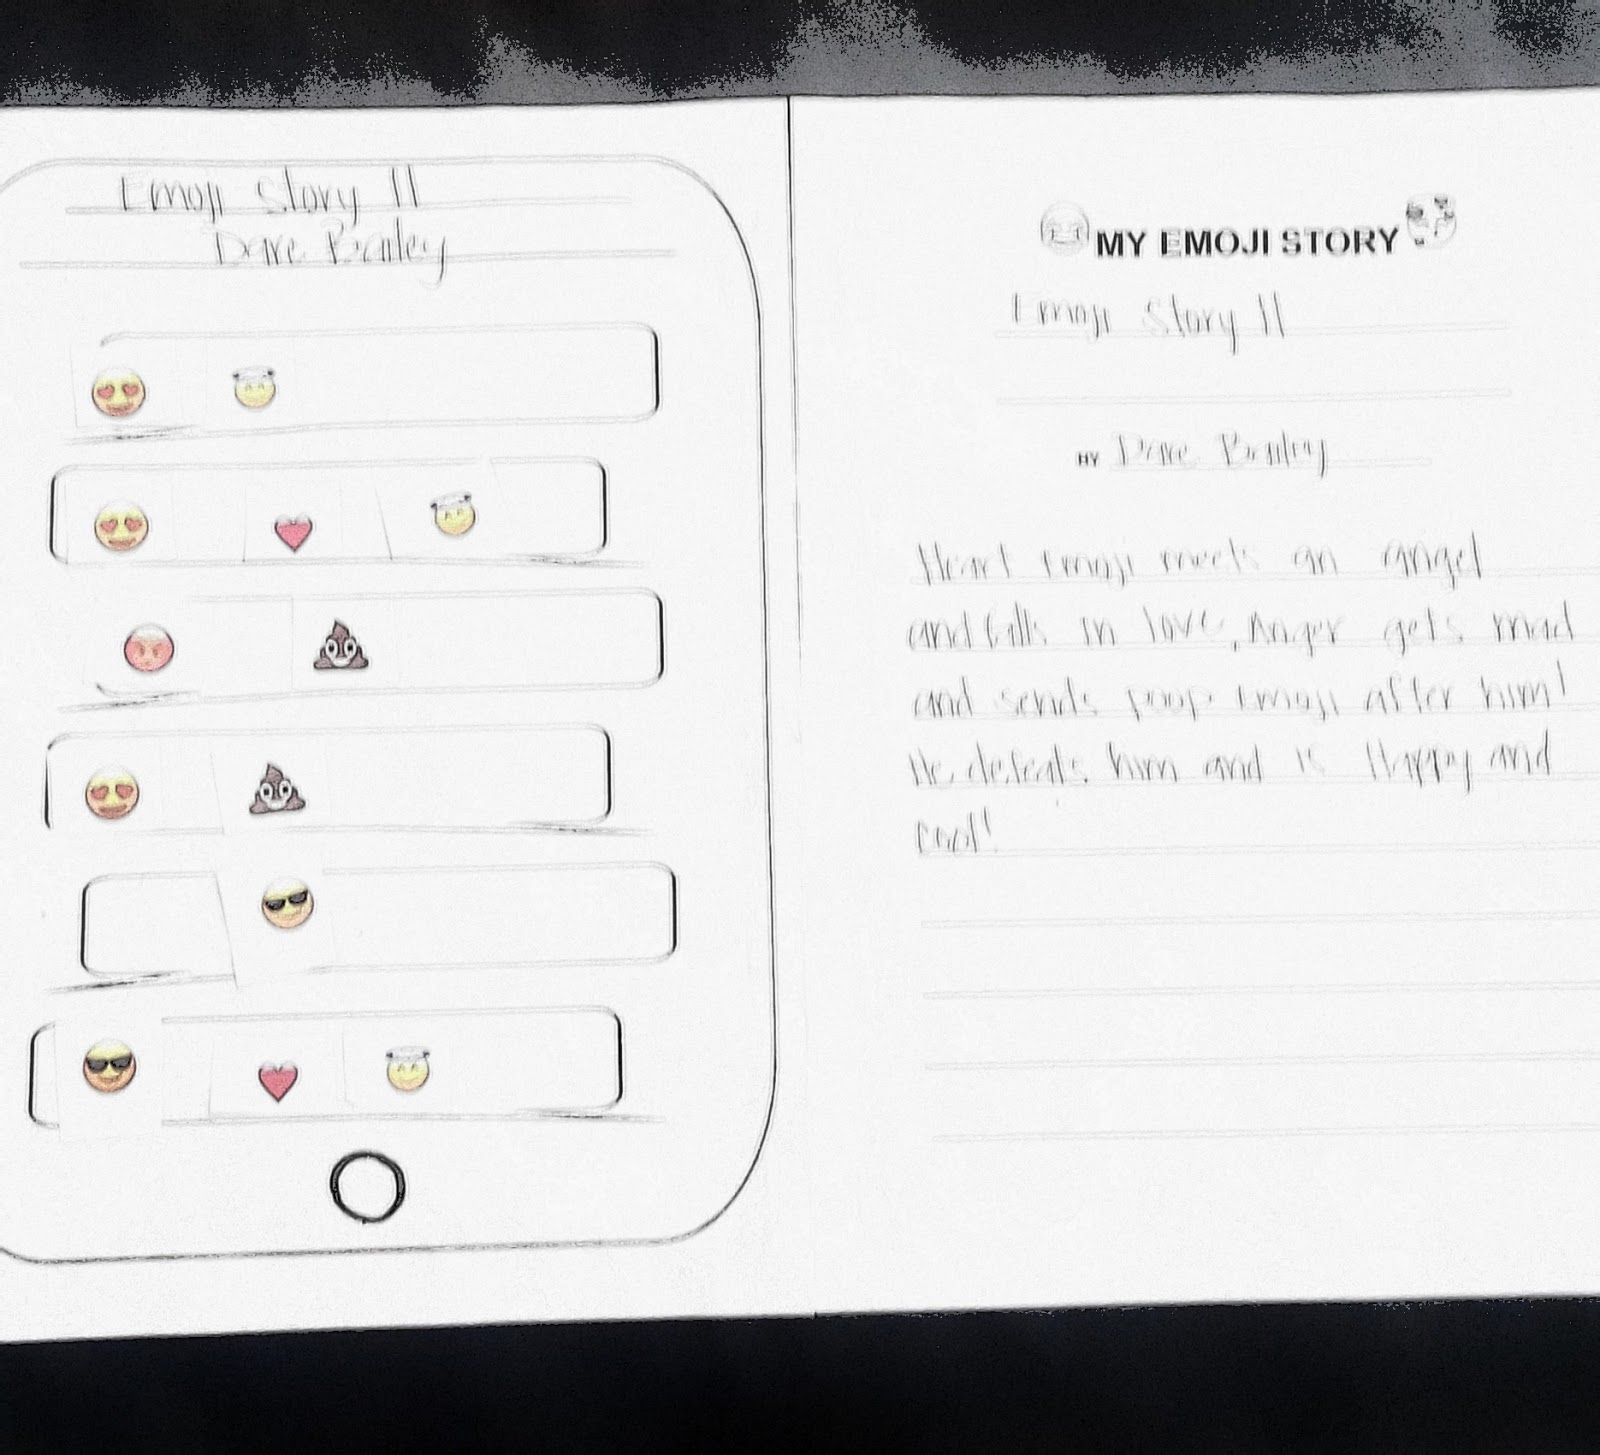 Emoji Story II
Dave Bailey
MY EMOJI STORY
Emoji Story II
BY Dave Bailey
Heart Emoji meets an angel
and falls in love. Anger gets mad
and sends poop Emoji after him!
He defeats him and is Happy and
cool!